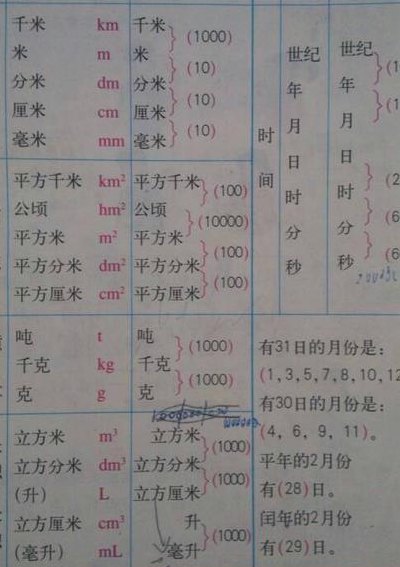 千米 km 千米 (1000)
米 m 米 (10)
分米 dm 分米 (10)
厘米 cm 厘米 (10)
毫米 mm 毫米
平方千米 km² 平方千米 (100)
公顷 hm² 公顷 (10000)
平方米 m² 平方米 (100)
平方分米 dm² 平方分米 (100)
平方厘米 cm² 平方厘米
吨 t 吨 (1000)
千克 kg 千克 (1000)
克 g 克
立方米 m³ 立方米 (1000)
立方分米 dm³ 立方分米 (1000)
(升) L 立方厘米
立方厘米 cm³ 升 (1000)
(毫升) mL 毫升
时间
世纪 世纪
年 年
月 月
日 日
时 时
分 分
秒 秒
有31日的月份是:
(1,3,5,7,8,10,12
有30日的月份是:
(4, 6, 9, 11)。
平年的2月份
有(28)日。
闰年的2月份
有(29)日。